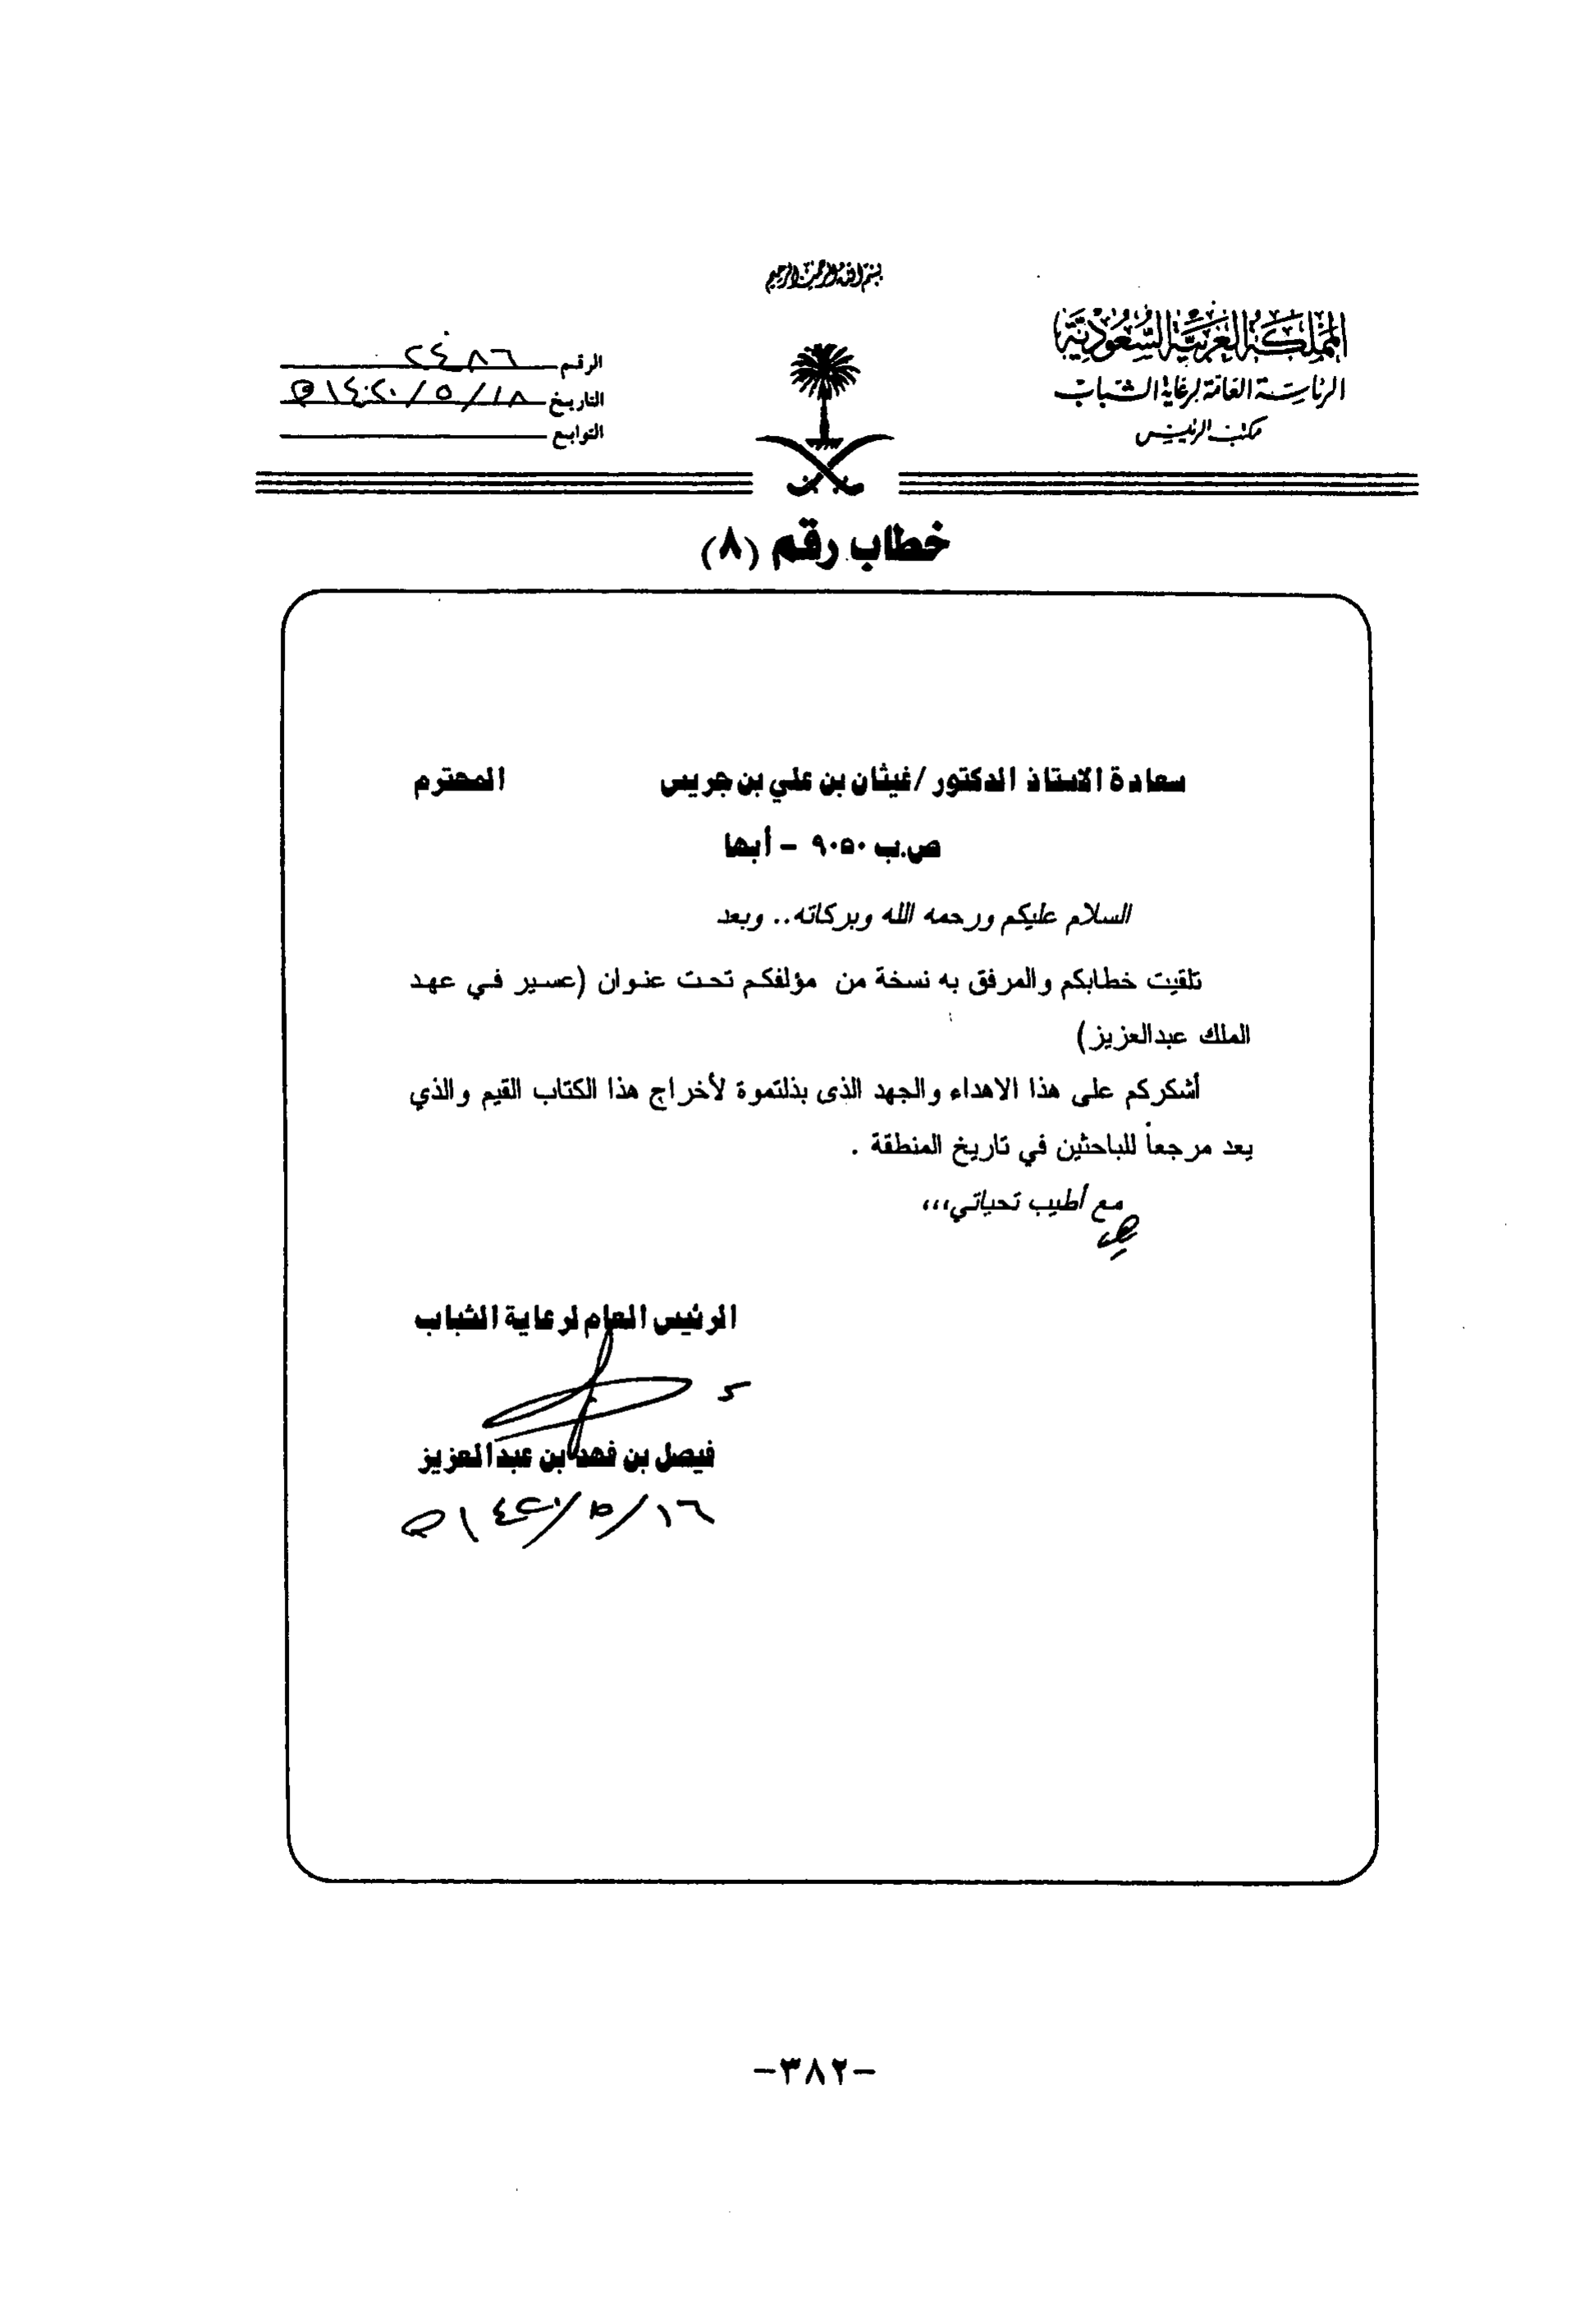 بسم الله الرحمن الرحيم
المملكة العربية السعودية
الرئاسة العامة لرعاية الشباب
مكتب الرئيس
الرقم ٢٤٨٦
التاريخ ١٤٢٠/٥/١٨هـ
التوابع
خطاب رقم (٨)
سعادة الاستاذ الدكتور/غيثان بن علي بن جريس المحترم
ص.ب ٩٠٥٠ - أبها
السلام عليكم ورحمه الله وبركاته.. وبعد
تلقيت خطابكم والمرفق به نسخة من مؤلفكم تحت عنوان (عسير في عهد
الملك عبدالعزيز)
أشكركم على هذا الاهداء والجهد الذى بذلتموة لأخراج هذا الكتاب القيم والذي
يعد مرجعاً للباحثين في تاريخ المنطقة .
مع أطيب تحياتي،،،
الرئيس العام لرعاية الشباب
فيصل بن فهد بن عبدالعزيز
١٤٢٠/٥/١٦هـ
-٣٨٢-